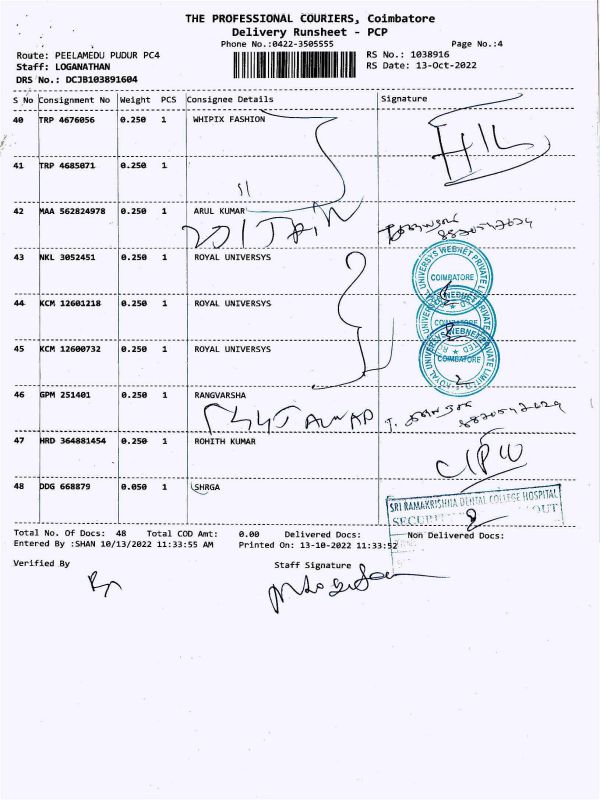 THE PROFESSIONAL COURIERS, Coimbatore
Delivery Runsheet - PCP
Phone No.:0422-3505555 Page No.:4
Route: PEELAMEDU PUDUR PC4 RS No.: 1038916
Staff: LOGANATHAN RS Date: 13-Oct-2022
DRS No.: DCJB103891604
S No Consignment No Weight PCS Consignee Details Signature
40 TRP 4676056 0.250 1 WHIPIX FASHION
41 TRP 4685071 0.250 1
42 MAA 562824978 0.250 1 ARUL KUMAR
43 NKL 3052451 0.250 1 ROYAL UNIVERSYS
44 KCM 12601218 0.250 1 ROYAL UNIVERSYS
45 KCM 12600732 0.250 1 ROYAL UNIVERSYS
COIMBATORE
46 GPM 251401 0.250 1 RANGVARSHA
47 HRD 364881454 0.250 1 ROHITH KUMAR
48 DDG 668879 0.050 1 SHRGA
SRI RAMAKRISHNA DENTAL COLLEGE HOSPITAL
Total No. Of Docs: 48 Total COD Amt: 0.00 Delivered Docs: Non Delivered Docs:
Entered By :SHAN 10/13/2022 11:33:55 AM Printed On: 13-10-2022 11:33:52
Verified By Staff Signature